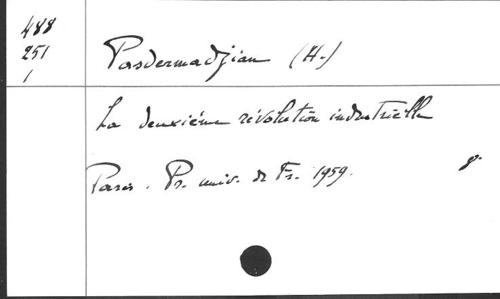 488
251
1
Pasdermadjian (H.)
La deuxième révolution industrielle
Paris. Pr. univ. de Fr. 1959. 8.